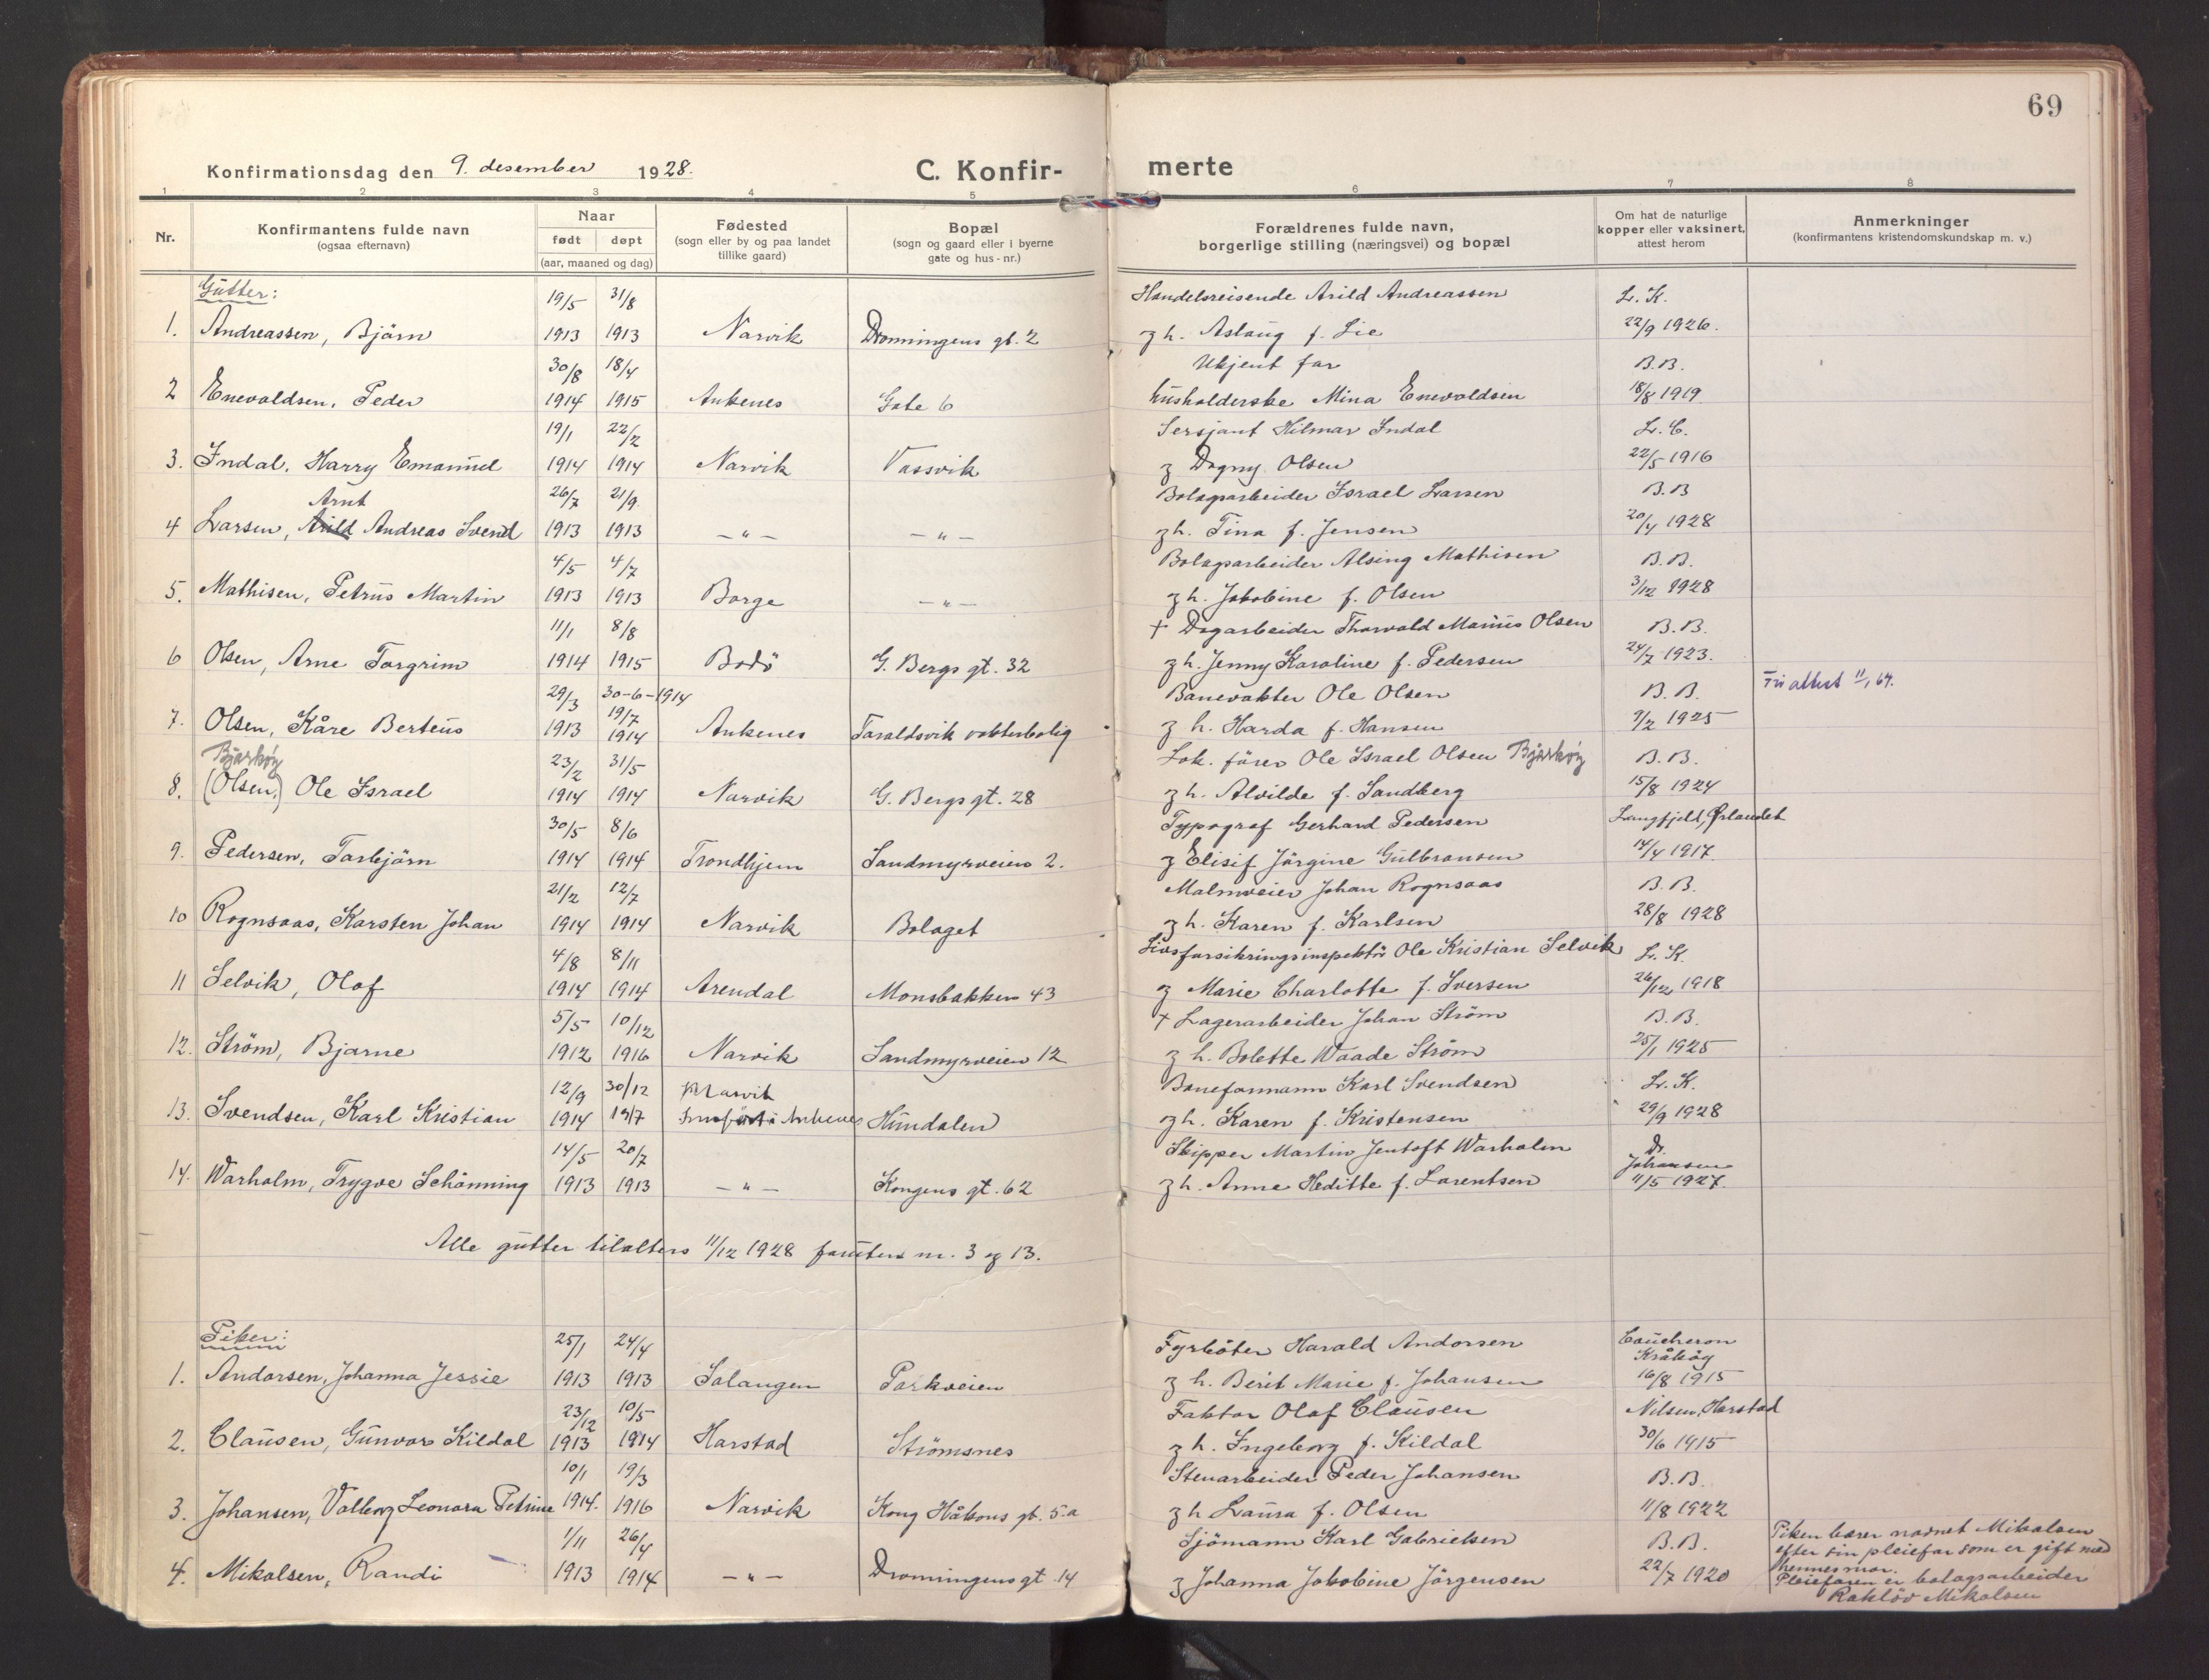 69
Konfirmationsdag den 9. desember 1928.
C. Konfir-
merte
1 2 3 4 5 6 7 8
Nr.
Konfirmantens fulde navn
(ogsaa efternavn)
Naar
født døpt
(aar, maaned og dag)
Fødested
(sogn eller by og paa landet
tillike gaard)
Bopæl
(sogn og gaard eller i byerne
gate og hus-nr.)
Forældrenes fulde navn,
borgerlige stilling (næringsvei) og bopæl
Om hat de naturlige
kopper eller vaksinert,
attest herom
Anmerkninger
(konfirmantens kristendomskundskap m. v.)
Gutter:
19/5 31/8 Handelsreisende Arild Andreassen L. K.
1. Andreassen, Bjärn 1913 1913 Narvik Dronningens gt. 2 og h. Aslaug f. Lie 22/9 1926.
30/8 18/4 Ukjent far B.B.
2 Enevoldsen, Peder 1914 1915 Ankenes Gate 6 husholderske Mina Enevoldsen 18/8 1919
19/1 22/2 Sersjant Hilmar Indal L. C.
3. Indal, Harry Emanuel 1914 1914 Narvik Vassvik og Dagny Olsen 22/5 1916
Arnt 26/7 21/9 Bolagsarbeider Israel Larsen B.B
4 Larsen, Arild Andreas Svend 1913 1913 — " — — " — og h. Tina f. Jensen 20/4 1928
4/5 4/7 Bolagsarbeider Alsing Mathisen B.B.
5. Mathisen, Petrus Martin 1913 1913 Borge — " — og h. Jakobine f. Olsen 3/12 1928
11/1 8/8 + Dagarbeider Thorvald Marius Olsen B.B.
6 Olsen, Arne Torgrim 1914 1915 Bodö G. Bergs gt. 32 og h. Jenny Karoline f. Pedersen 24/7 1923.
29/3 30-6-1914 Banevokter Ole Olsen B.B. Fri attest 11/1 64.
7. Olsen, Kåre Berteus 1913 19/7 1914 Ankenes Taraldsvik vokterbolig og h. Harda f. Hansen 9/2 1925
Bjarköy 23/2 31/5 Lok. förer Ole Israel Olsen Bjarköy B.B.
8. (Olsen,) Ole Israel 1914 1914 Narvik G. Bergs gt. 28 og h. Alvilde f. Sandberg 15/8 1924
30/5 8/6 Typograf Gerhard Pedersen Langfjeld, Ørlandet
9. Pedersen, Torbjörn 1914 1914 Trondhjem Sandmyrveien 2. og Elisif Jörgine Gulbransen 14/4 1917
21/2 12/7 Malmveier Johan Rognsaas B.B.
10 Rognsaas, Karsten Johan 1914 1914 Narvik Bolaget og h. Karen f. Karlsen 28/8 1928
4/8 8/11 Livsforsikringsinspektör Ole Kristian Selvik L. K.
11 Selvik, Olaf 1914 1914 Arendal Monsbakken 43 og Marie Charlotte f. Iversen 26/12 1918
5/5 10/12 + Lagerarbeider Johan Ström B.B.
12. Ström, Bjarne 1912 1916 Narvik Sandmyrveien 12 og h. Bolette Waade Ström 25/1 1925
12/9 30/12 Narvik Baneformann Karl Svendsen L. K.
13. Svendsen, Karl Kristian 1914 1917 Innfört i Ankenes Hundalen og h. Karen f. Kristensen 29/9 1928
14/5 20/7 Skipper Martin Jentoft Warholm Dr. Johansen
14. Warholm, Trygve Schönning 1913 1913 — " — Kongens gt. 62 og h. Anne Heditte f. Lorentsen 11/5 1927.
Alle gutter tilalters 11/12 1928 foruten nr. 3 og 13.
Piker:
25/1 24/4 Fyrböter Harald Andorsen Coucheron Kråköy
1. Andorsen, Johanna Jessie 1913 1913 Salangen Parkveien og h. Berit Marie f. Johansen 16/8 1915
23/12 10/5 Faktor Olaf Clausen Nilsen, Harstad
2. Clausen, Gunvor Kildal 1913 1914 Harstad Strömsnes og h. Ingeborg f. Kildal 30/6 1915
10/1 19/3 Stenarbeider Peder Johansen B.B.
3. Johansen, Valborg Leonora Petrine 1914. 1916 Narvik Kong Håkons gt. 5.a og h Laura f. Olsen 11/8 1922
1/11 26/4 Sjömann Karl Gabrielsen B.B.
4. Mikalsen, Randi 1913 1914 — " — Dronningens gt. 14 og Johanna Jakobine Jörgensen 22/7 1920
Piken bærer navnet Mikalsen
efter sin pleiefar som er gift med
hennes mor.
Pleiefaren er bolagsarbeider
Mikalsen